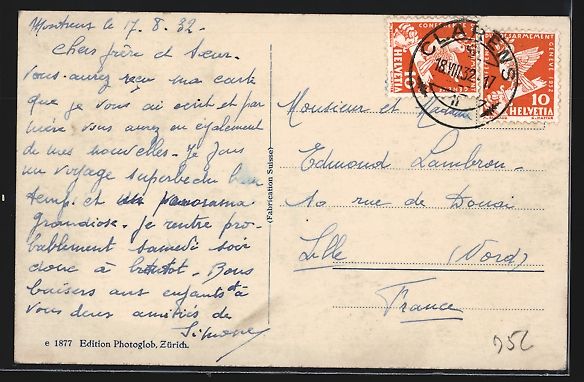 Montreux le 17. 8. 32.
Chers frère et sœur.
Vous aurez reçu ma carte
que je vous ai écrit et par
mère vous aurez eu également
de mes nouvelles. Je fais
un voyage superbe du beau
temps et un panorama
grandiose. Je rentre pro-
bablement samedi soir
donc à bientôt. Bons
baisers aux enfants et à
vous deux amitiés de
Simone
e 1877 Edition Photoglob, Zürich.
(Fabrication Suisse)
CLARENS
18.VIII.32.17
HELVETIA
10
DESARMEMENT
GENEVE 1932
10
HELVETIA
Monsieur et Madame
Edmond Lambron.
10 rue de Douai
Lille (Nord)
France